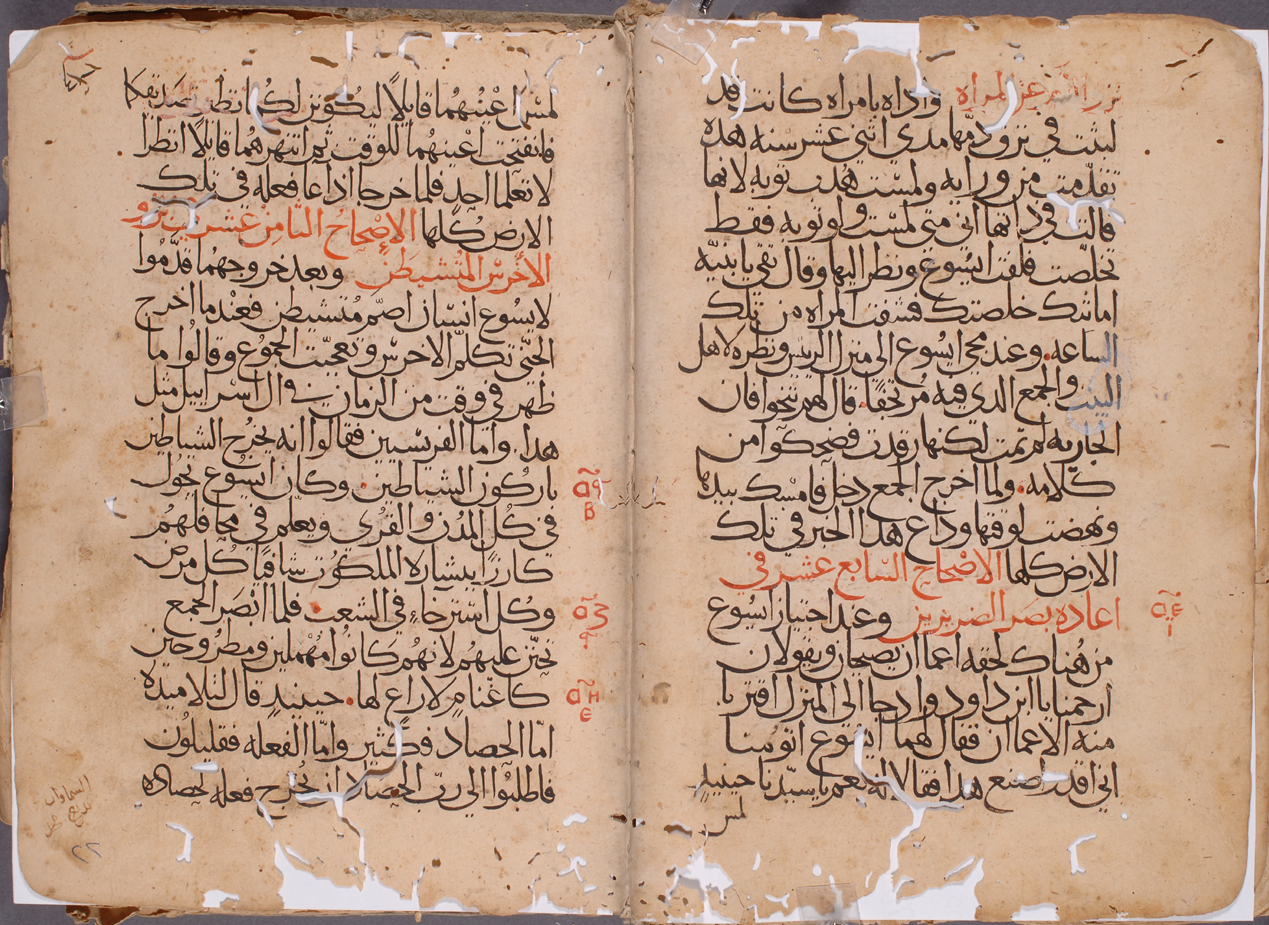 نزف الدم عن المراه واداه بامراه كانت قد
لبثت في نزو دمها مدى اثني عشر سنه هده
تقدمت من ورايه ولمست هدب توبه لانها
قالت في داتها اني متى لمست ولو توبه فقط
تخلصت فلفت ايسوع ونظر اليها وقال تقي يابنيه
امانتك خلصتك فشفت المراه من تلك
الساعه. وعند مجي ايسوع الى منزل الريس ونظره لاهل
البيت والجمع الدي فيه مرتجفا. قال لهم تنحوا فان
الجاريه لم تمت لكنها رقدت فضحكوا من
كلامه. ولما اخرج الجمع دخل فامسك بيدها
ونهضت لوقتها وداع هدا الخبر في تلك
الارض كلها الاصحاح السابع عشر في
اعاده بصر الضريرين وعند اجتياز ايسوع
من هناك لحقه اعما ان يصيحان ويقولان
ارحمنا يا ابن داوود وادجا الى المنزل اقتربا
منه الاعما ان فقال لهما ايسوع اتومنا
اني اقدر اصنع هدا فقالا له نعم يا سيدنا حينيدٍ
لمس
ā ϛ
ī
لمس اعينهما قايلاً ليكون لكما نظر تصديقكما
فانفتحت اعينهما للوقت ثم انتهرهما قايلاً انظرا
لا تعلما احد فلما خرجا اداعا فعله في تلك
الارض كلها الاصحاح التامن عشر في برو
الاخرس المتشيطن وبعد خروجهما قدموا
لايسوع انسان اصم متشيطن فعند ما اخرج
الجني تكلم الاخرس وتعجبت الجموع وقالوا ما
ظهر في وقت من الزمان في ال اسراييل مثل
هدا. واما الفريسيين فقالوا انه يخرج الشياطين
باركون الشياطين. وكان ايسوع يجول
في كل المدن والقرى ويعلم في محافلهم
كارزا ببشاره الملكوت شافيا كل مرض
وكل استرخاء في الشعب. فلما ابصر الجمع
تحنن عليهم لانهم كانوا مهملين ومطروحين
كاغنام لا راع لها. حينيدٍ قال لتلاميده
اما الحصاد فكثير واما الفعله فقليلون
فاطلبوا الى رب الحصاد ان يخرج فعله لحصاده
٢٢